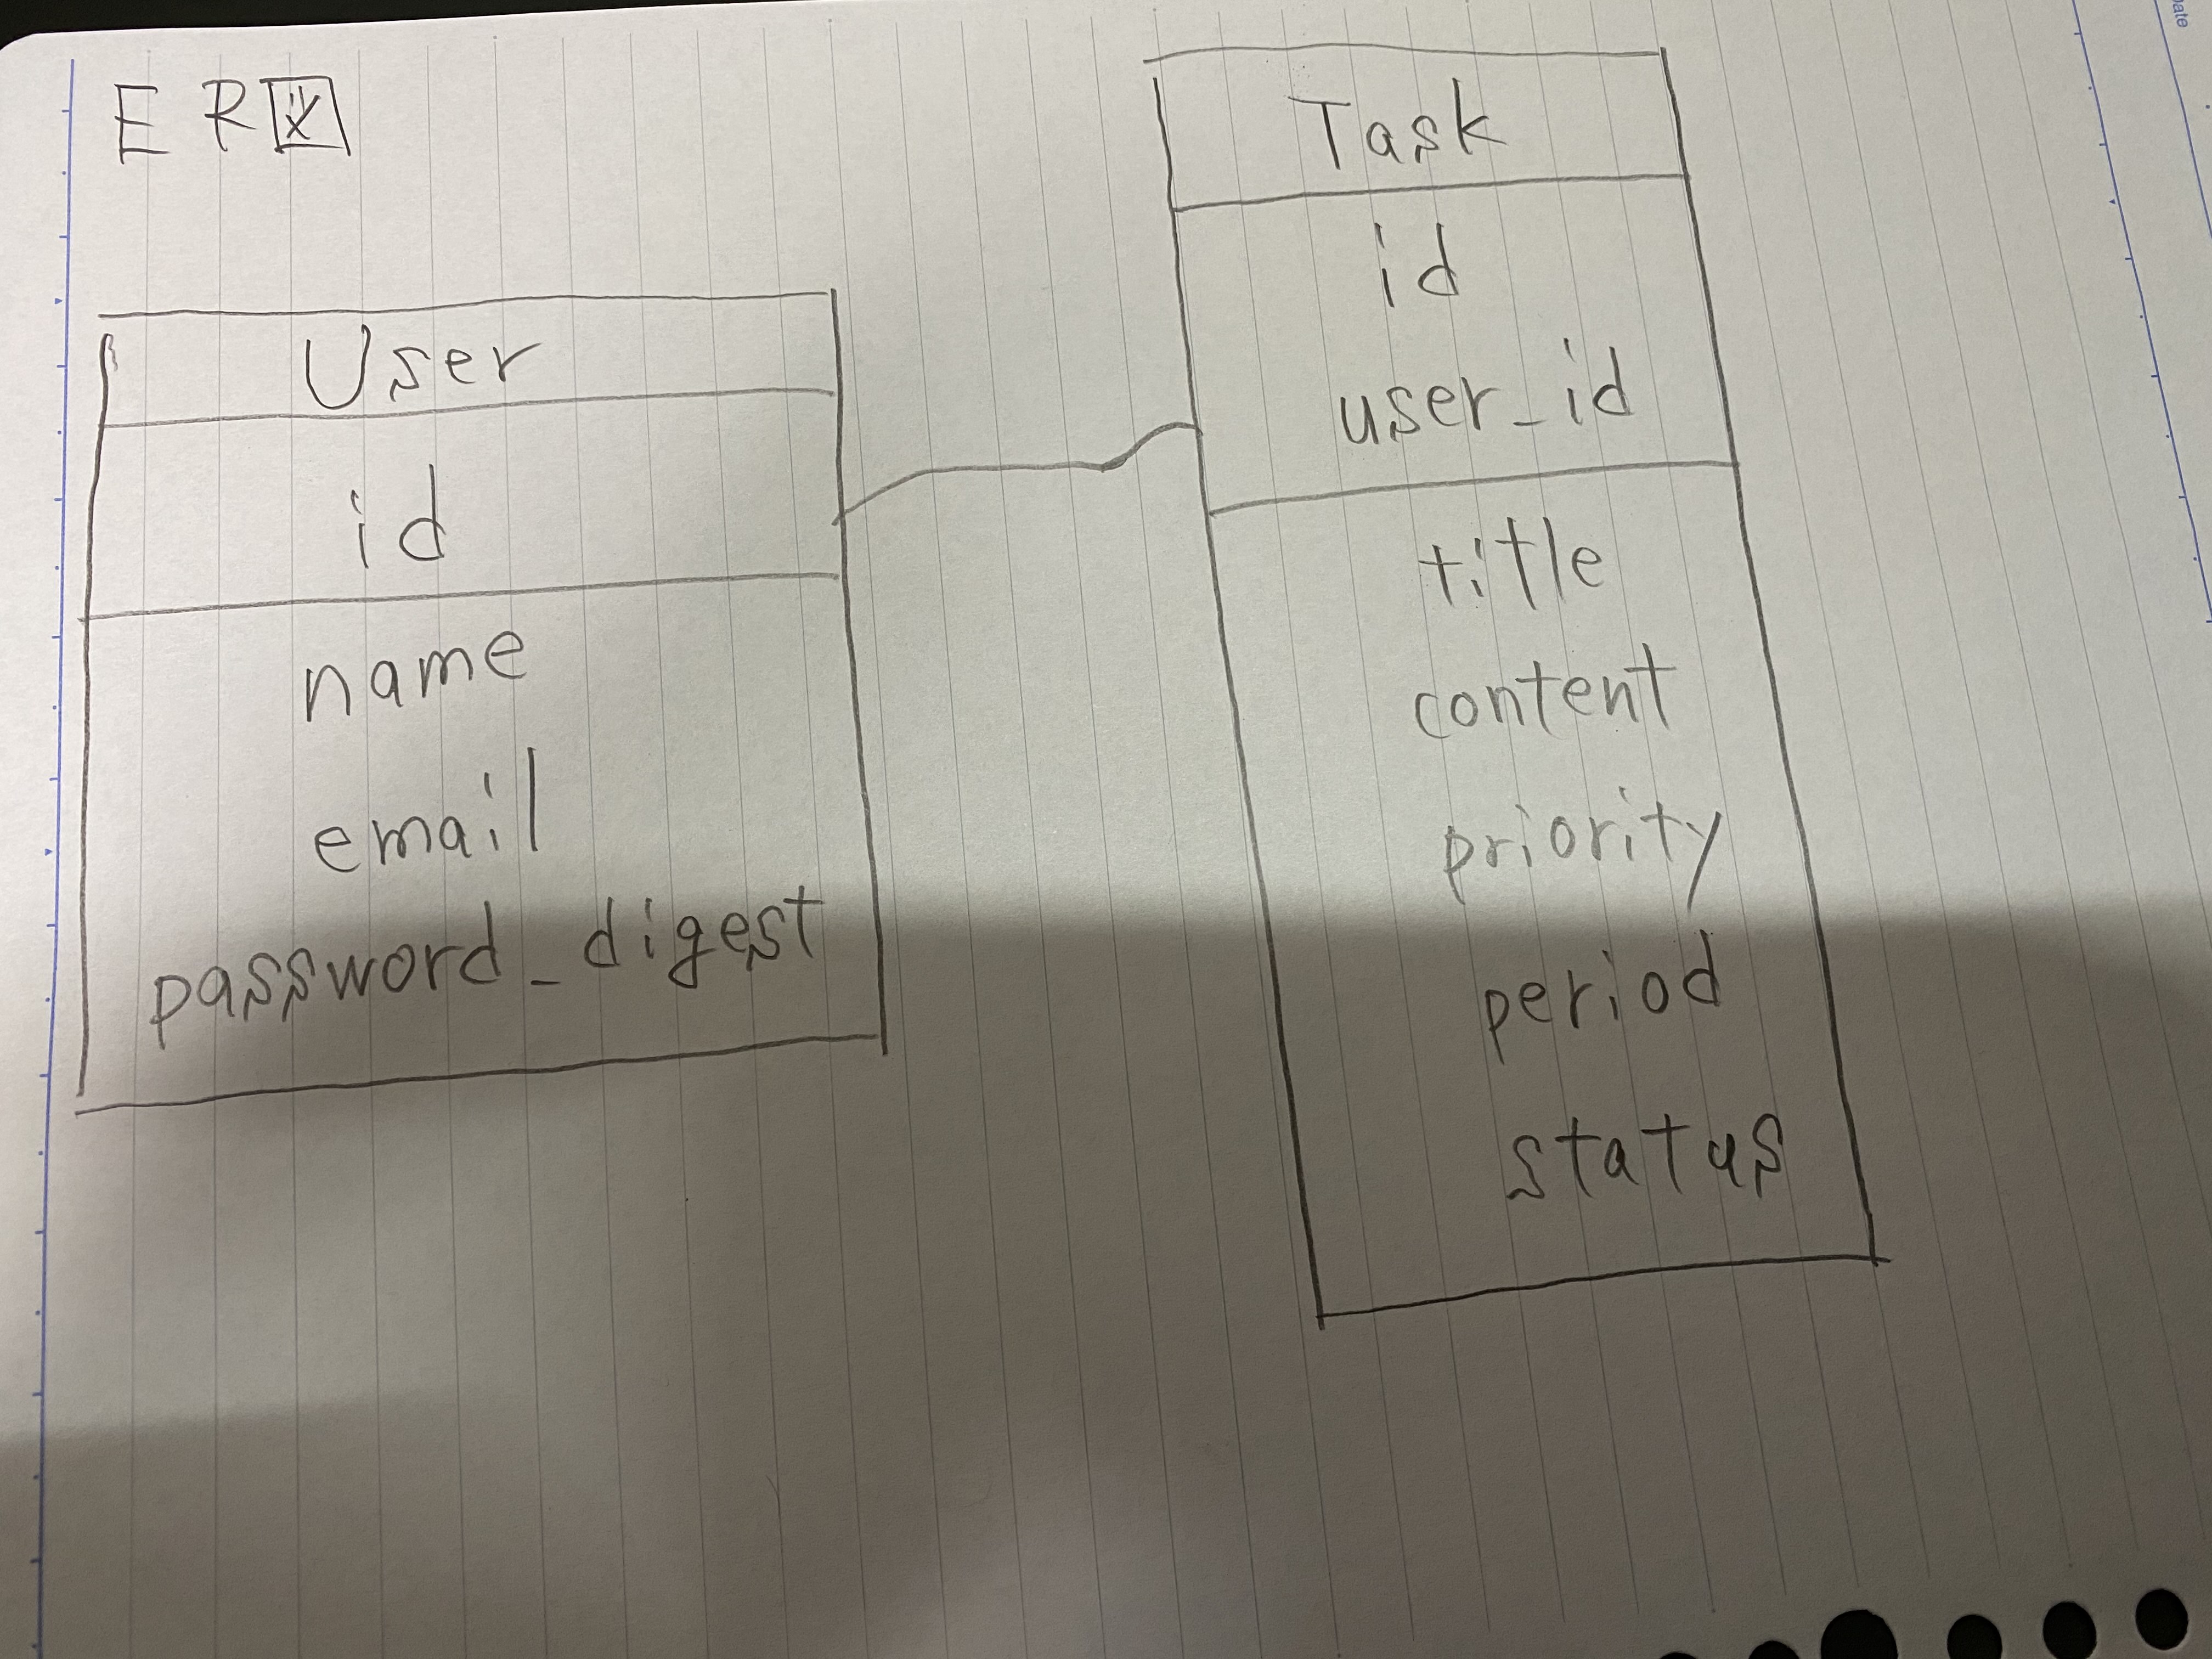 ER図
User
id
name
email
password_digest
Task
id
user_id
title
content
priority
period
status
Date